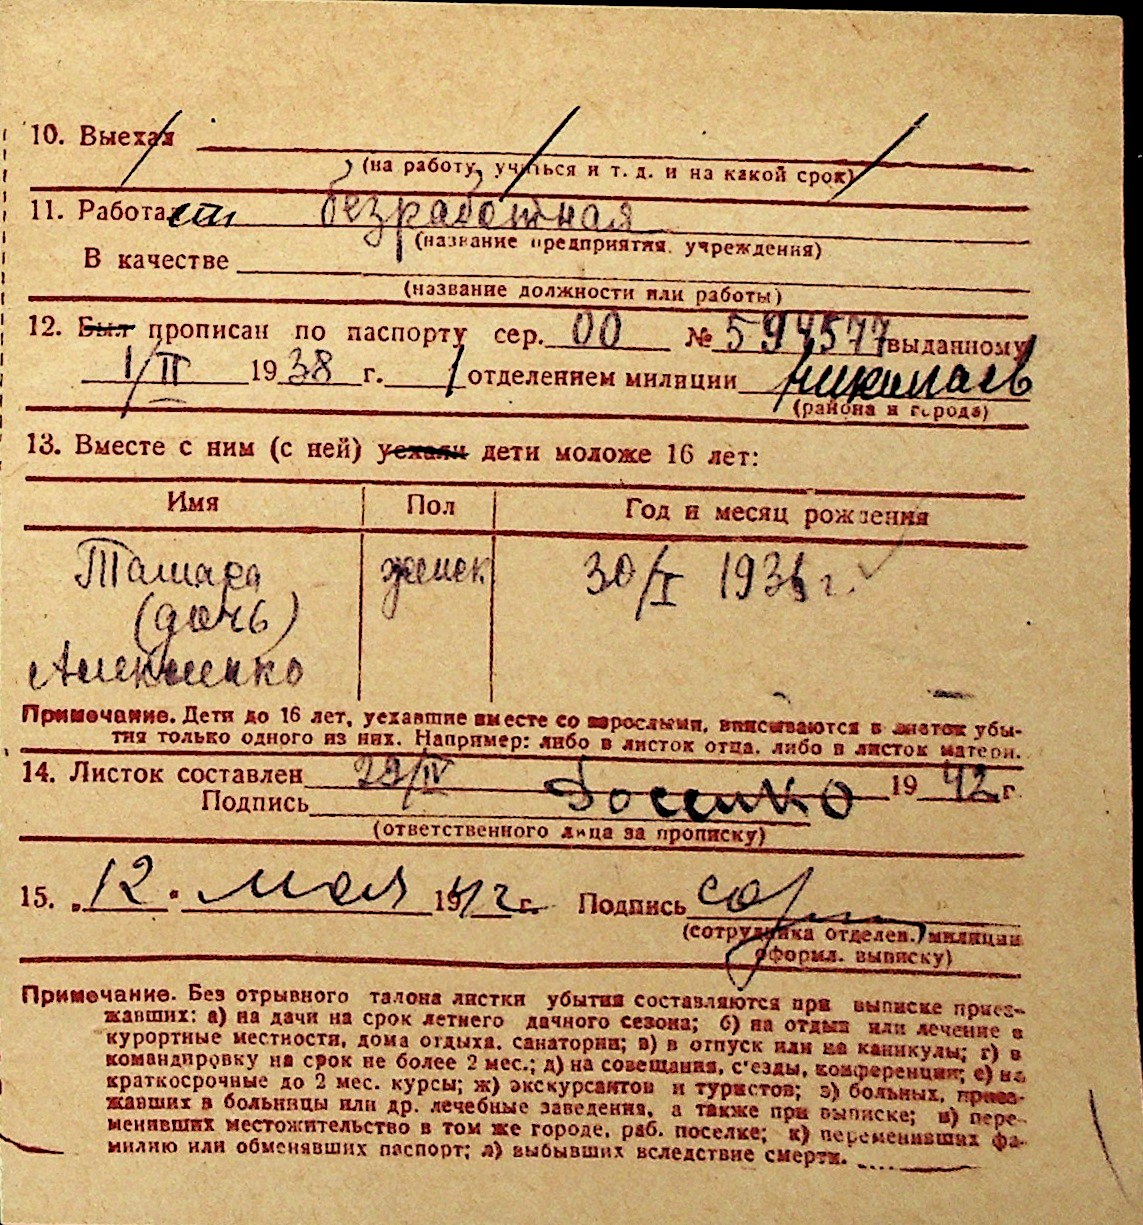 10. Выехал
(на работу, учиться и т. д. и на какой срок)
11. Работает безработная
(название предприятия, учреждения)
В качестве
(название должности или работы)
12. Был прописан по паспорту сер. 00 № 594577 выданному
1/II 1938 г. 1 отделением милиции Николаев
(района и города)
13. Вместе с ним (с ней) уехали дети моложе 16 лет:
Имя Пол Год и месяц рождения
Тамара женск 30/I 193 г.
(дочь)
Примечание. Дети до 16 лет, уехавшие вместе со взрослыми, вписываются в листок убы-
тия только одного из них. Например: либо в листок отца, либо в листок матери.
14. Листок составлен 29/IV 1942 г.
Подпись
(ответственного лица за прописку)
15. „12" мая 1942 г. Подпись
(сотрудника отделен. милиции
оформл. выписку)
Примечание. Без отрывного талона листки убытия составляются при выписке приез-
жавших: а) на дачи на срок летнего дачного сезона; б) на отдых или лечение в
курортные местности, дома отдыха, санатории; в) в отпуск или на каникулы; г) в
командировку на срок не более 2 мес.; д) на совещания, с'езды, конференции; е) на
краткосрочные до 2 мес. курсы; ж) экскурсантов и туристов; з) больных, приез-
жавших в больницы или др. лечебные заведения, а также при выписке; и) пере-
менивших местожительство в том же городе, раб. поселке; к) переменивших фа-
милию или обменявших паспорт; л) выбывших вследствие смерти.